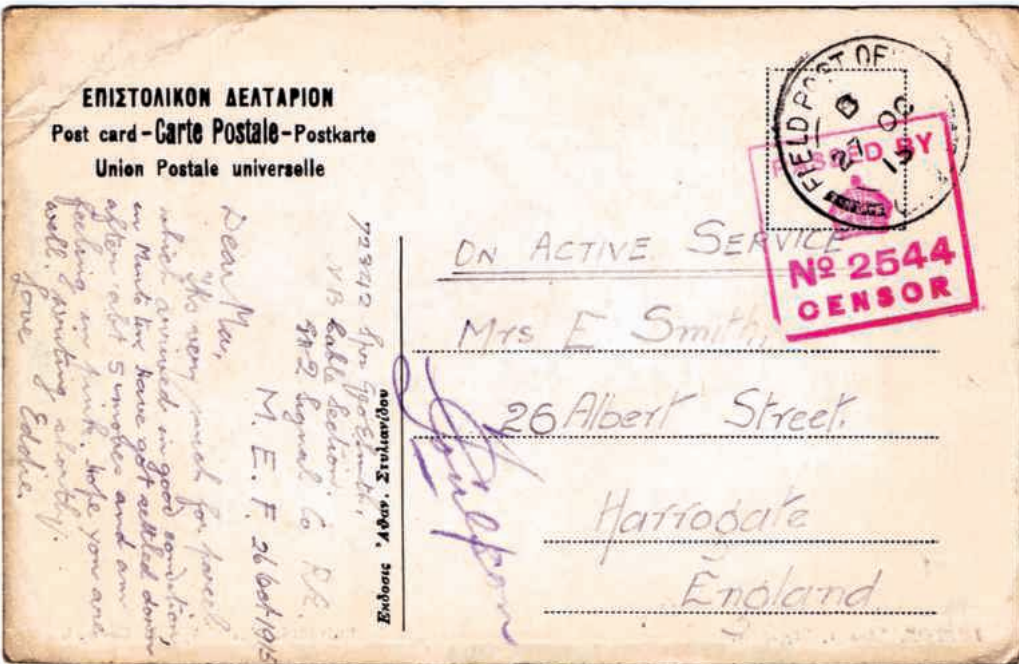 ΕΠΙΣΤΟΛΙΚΟΝ ΔΕΛΤΑΡΙΟΝ
Post card - Carte Postale - Postkarte
Union Postale universelle
FIELD POST OF
D
27 OC
15
PASSED BY
No 2544
CENSOR
ON ACTIVE SERVICE
Mrs E Smith,
26 Albert Street.
Harrogate
England
Εκδοσις Αθαν. Στυλιανίδου
72342 Spr Geo E Smith,
Cable Section
2 Signal Co R.E.
M. E. F. 26 Oct 1915
Dear Ma,
Thks very much for parcel
which arrived in good condition,
in Minto tin. Have got settled down
after abt 5 moves and am
feeling in pink. Hope you are
well. Writing shortly.
Love Eddie.